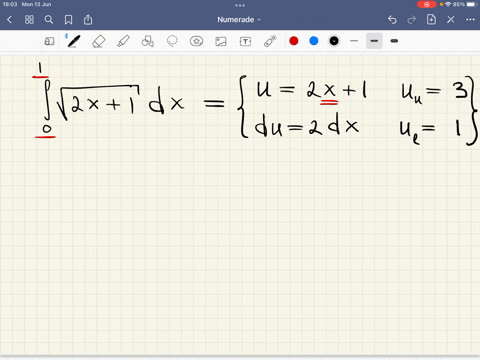 19:03 Mon 13 Jun
85%
Numerade
∫₀¹ √(2x+1) dx = { u = 2x + 1 u_u = 3
du = 2dx u_l = 1 }